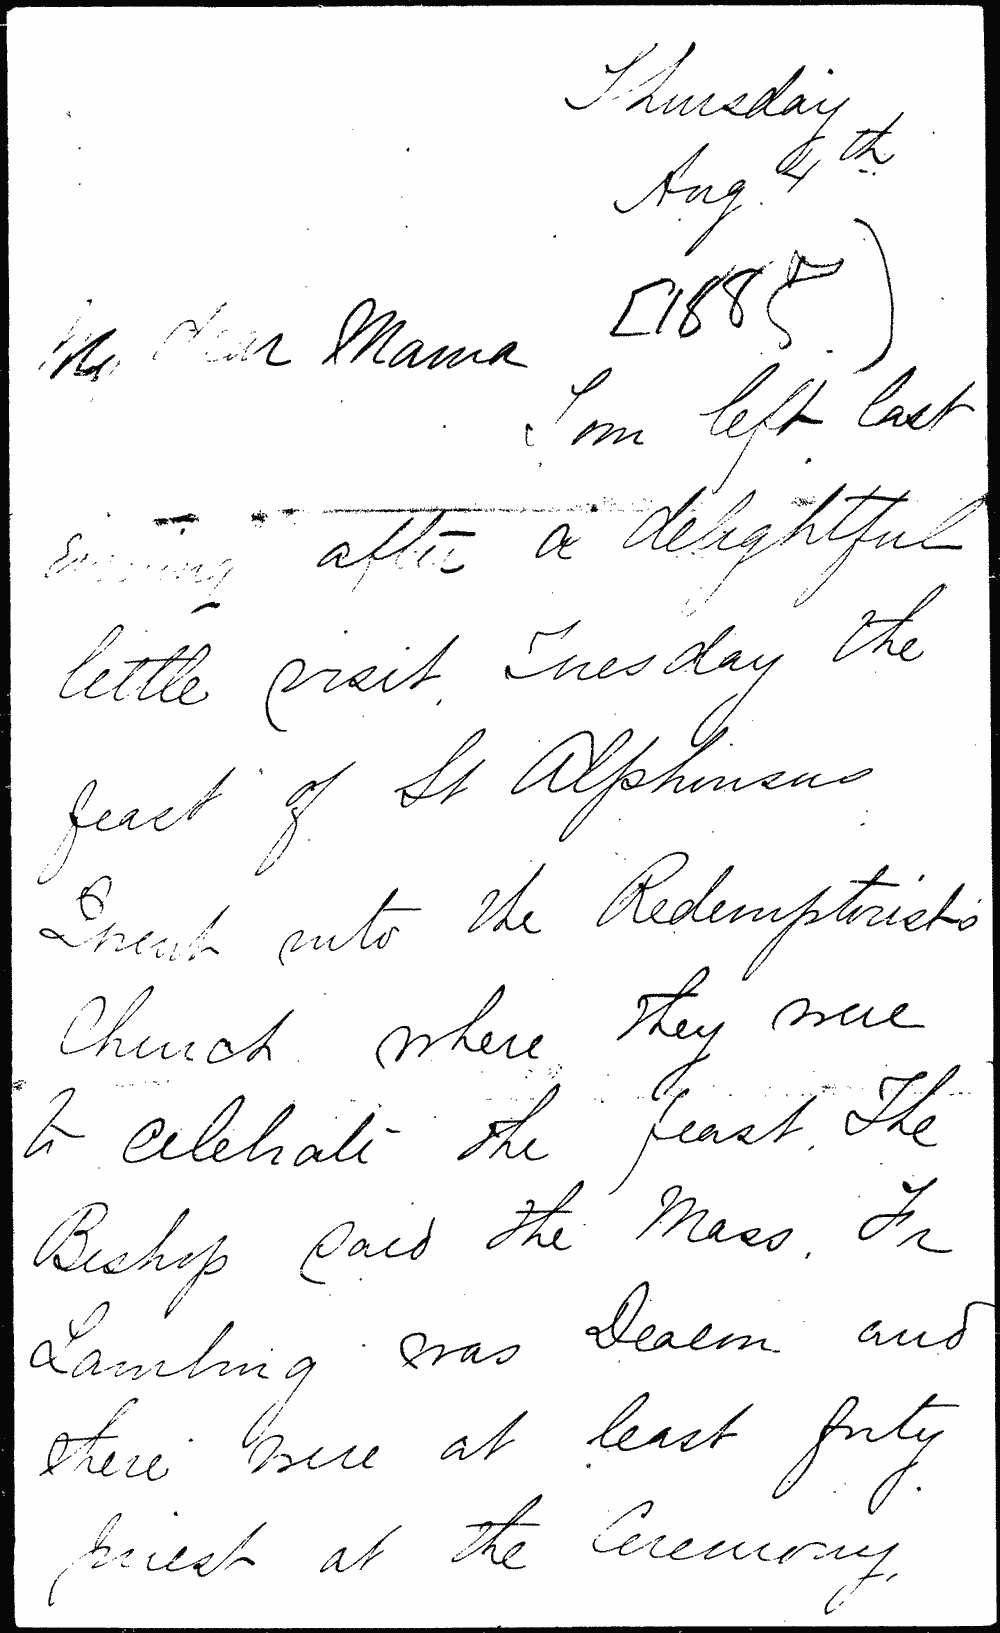 Thursday
Aug. 4th
[1885)
My dear Mama
Tom left last
evening after a delightful
little visit. Tuesday the
feast of St Alphonsus
I went into the Redemptorists
Church where they were
to celebrate the feast. The
Bishop said the Mass. Fr
Lambing was Deacon and
there were at least forty
priest at the Ceremony.